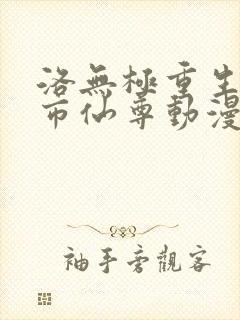 洛無極重生
市仙尊動漫
袖手旁觀客